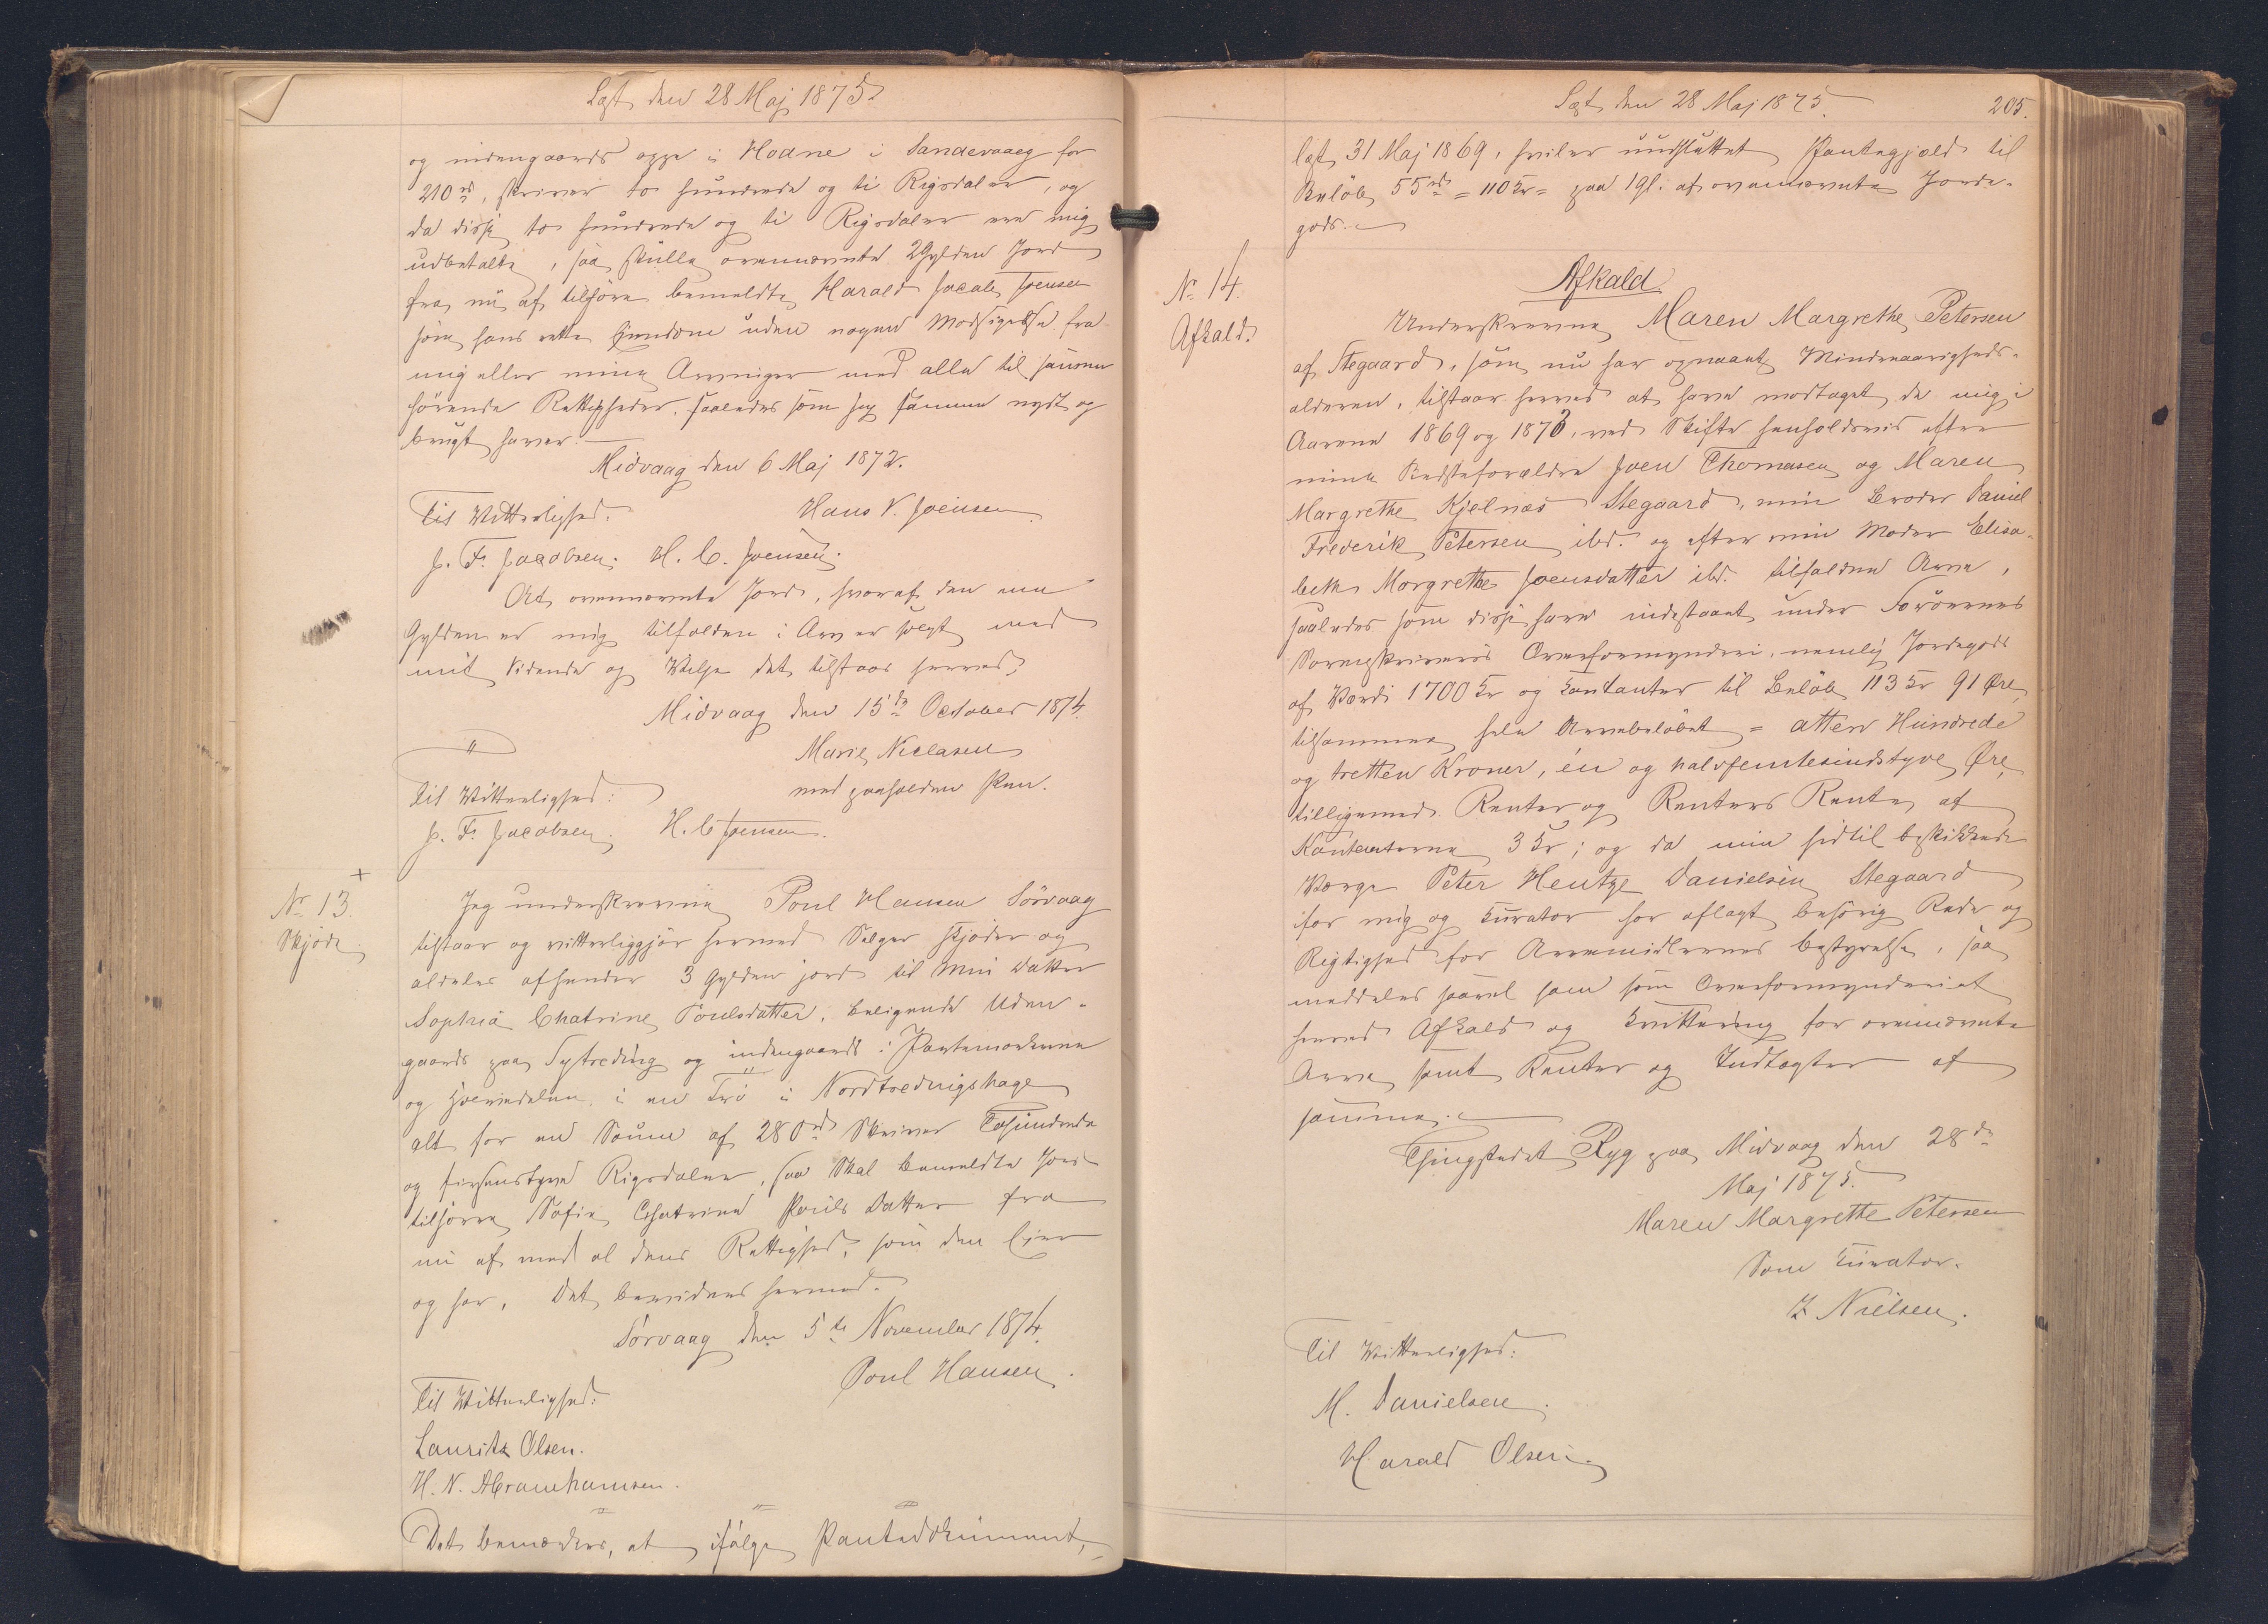 Læst den 28 Maj 1875.
og indengaards oppe i Hodne i Sandevaag for
210 rd, skriver to hundrede og ti Rigsdaler, og
da disse to hundrede og ti Rigsdaler ere mig
udbetalte, saa skulle ovennævnte 2 Gylden Jord
fra nu af tilhøre bemeldte Harald Jacob Joensen
som hans rette Eiendom uden nogen Modsigelse fra
mig eller mine Arvinger med alle til samme
hørende Rettigheder, saaledes som jeg samme nydt og
brugt haver.
Midvaag den 6 Maj 1872.
Til Vitterlighed. Hans N. Joensen
J. F. Jacobsen. H. C. Joensen.
At ovennævnte Jord, hvoraf den ene
Gylden er mig tilfalden i Arv er solgt med
mit Vidende og Villje det tilstaaes herved.
Midvaag den 15de October 1874.
Marie Niclasen
Til Vitterlighed: med paaholden Pen.
J. F. Jacobsen. H. C. Joensen.
Nr 13. +
Skjøde.
Jeg underskrevne Poul Hansen Sörvaag
tilstaar og vitterliggjør hermed Sælger skjøder og
aldeles afhender 3 Gylden jord til Min Datter
Sophia Chatrine Poulsdatter, beligende Uden-
gaards paa Sytreding og indengaards i
og i en Trö i Nordtredingshage
alt for en Summe af 280 rd Skriver Tohundrede
og firsenstyve Rigsdaler, saa Skal bemeldte Jord
tilhøre Sofia Chatrine Pouls Datter fra
nu af med al dens Rettighed, som den Eier
og har, Det bevidnes hermed.
Sörvaag den 5te November 1874.
Poul Hansen.
Til Vitterlighed:
Lauritz Olsen.
H. N. Abramhamsen.
Det bemærkes, at ifølge Pantedokument,
Læst den 28 Maj 1875. 205.
læst 31 Maj 1869, hviler uudslettet Pantegjæld til
Beløb 55 rd = 110 Kr = paa 1 Gl. af ovennævnte Jorde-
gods.
Nr 14.
Afkald.
Afkald.
Underskrevne Maren Margrethe Petersen
af Stegaard, som nu har opnaaet Mindreaarigheds-
alderen, tilstaar herved at have modtaget de mig i
Aarene 1869 og 1873, ved Skifte henholdsvis efter
mine Bedsteforældre Joen Thomasen og Maren
Margrethe Kjelnæs Stegaard, min Broder Daniel
Frederik Petersen ibd. og efter min Moder Elisa-
beth Margrethe Joensdatter ibd. tilfaldne Arve,
saaledes som disse have indestaaet under Færøernes
Sorenskriveris Overformynderi, nemlig Jordegods
af Værdi 1700 Kr og Kontanter til Beløb 113 Kr 91 Øre
tilsammen hele Arvebeløbet = atten Hundrede
og tretten Kroner, én og halvfemtesindstyve Øre
tilligemed Renter og Renters Rente af
Kontanterne 3 Kr; og da min hidtil beskikkede
Værge Peter Hentze Danielsen Stegaard
for mig og Kurator har aflagt behørig Rede og
Rigtighed for Arvemidlernes bestyrelse, saa
meddeles saavel ham som Overformynderiet
herved Afkald og Kvittering for ovennævnte
Arve samt Renter og Indtægter af
samme.
Thingstedet Ryg paa Midvaag den 28de
Maj 1875.
Maren Margrethe Petersen
Som Kurator.
Z Nielsen.
Til Vitterlighed:
M. Danielsen.
Harald Olsen.